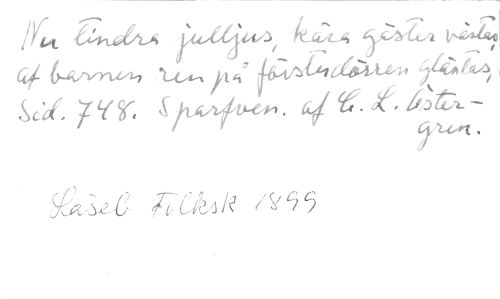 Nu tindra julljus, kära gäster väntas
af barnen ren på förstudörren gläntas,
Sid. 748. Sparfven. af C. L. Öster-
gren.
Läseb Folksk 1899